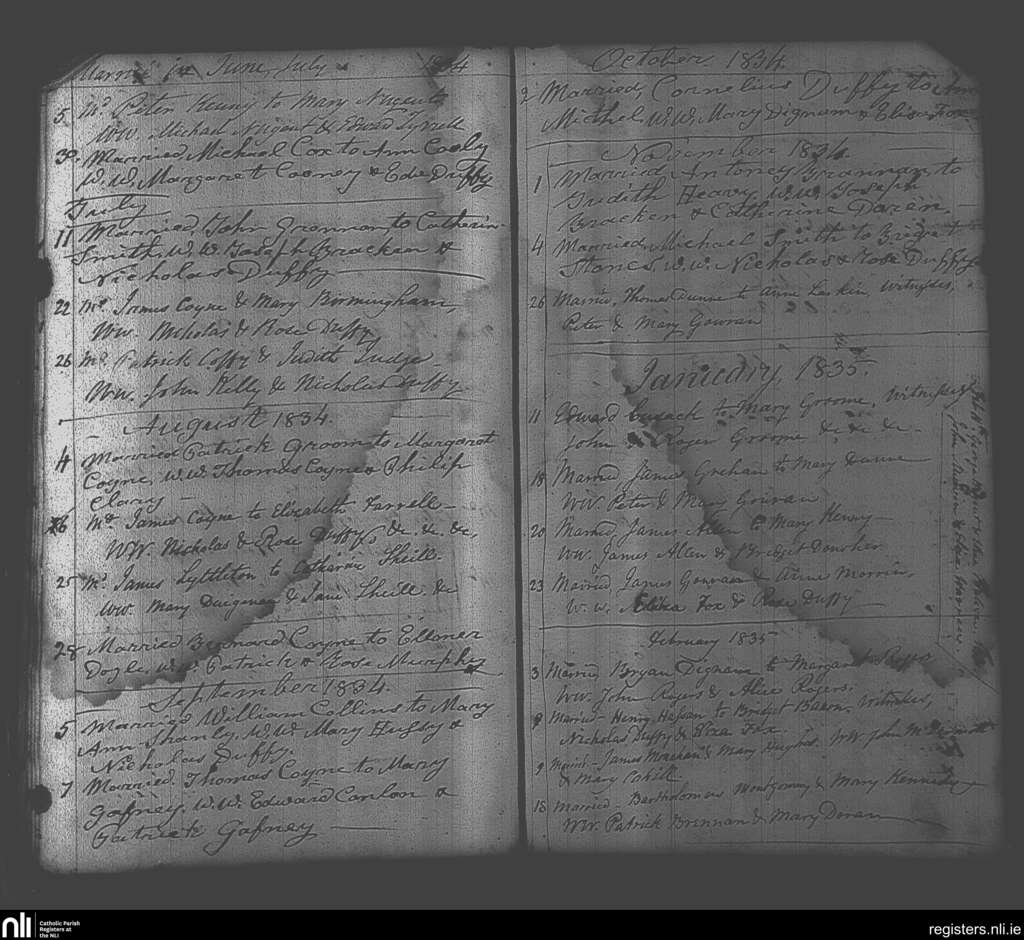 Married in June, July 1834
5 Md. Peter Kenny to Mary Nugent
WW. Michael Nugent & Edward Tyrrell
30. Married Michael Cox to Ann Cooly
W.W. Margaret Cooney & Edw Duffy
July
11 Married John Grennon to Catherin
Smith, W.W. Joseph Bracken &
Nicholas Duffy
22 Md. James Coyne & Mary Birmingham,
WW. Nicholas & Rose Duffy
26 Md. Patrick Coffy & Judith Judge
WW. John Kelly & Nicholas Duffy
August 1834.
4 Married Patrick Groom to Margaret
Coyne, W.W. Thomas Coyne & Philip
Clary
26 Md. James Coyne to Elizabeth Farrell
WW. Nicholas & Rose Duffy, &c. &c. &c.
25 Md. James Lyttleton to Catharine Sheill
WW. Mary Duigenan & Jane Sheill &c
28 Married Bernard Coyne to Elloner
Doyle, W.W. Patrick & Rose Murphy
September 1834.
5 Married William Collins to Mary
Ann Shanly, W.W. Mary &
Nicholas Duffy.
7 Married Thomas Coyne to Mary
Gafney, W.W. Edward Conlon &
Patrick Gafney
October 1834
2 Married, Cornelius Duffy to Ann
Mithel W.W. Mary Dignam & Eliza Fox
November 1834.
1 Married Antoney Brannan to
Judith Heavy W.W. Joseph
Bracken & Catherine Doren
4 Married Michael Smith to Bridget
Stones, W.W. Nicholas & Rose Duffy
26 Married, Thomas Dunne to Anne Larkin, Witnesses,
Peter & Mary Gowran
January, 1835.
11 Edward Cusack to Mary Groome, Witnesses
John & Roger Groome &c. &c. &c.
18 Married James Grehan to Mary Dunne
WW. Peter & Mary Gowran
20 Married, James Allen to Mary Kenny
WW. James Allen & Bridget
23 Married, James Gowran & Anne Morrin,
W.W. Eliza Fox & Rose Duffy
February 1835
3 Married, Bryan Dignam to Margaret Rogers
WW. John Rogers & Alice Rogers.
8 Married - Henry to Bridget Witnesses,
Nicholas Duffy & Eliza Fox
9 Married - James & Mary Hughes. WW. John
& Mary Cahill
18 Married - Bartholomew Montgomery & Mary Kennedy
WW. Patrick Brennan & Mary Doran
nli
Catholic Parish
Registers at
the NLI
registers.nli.ie